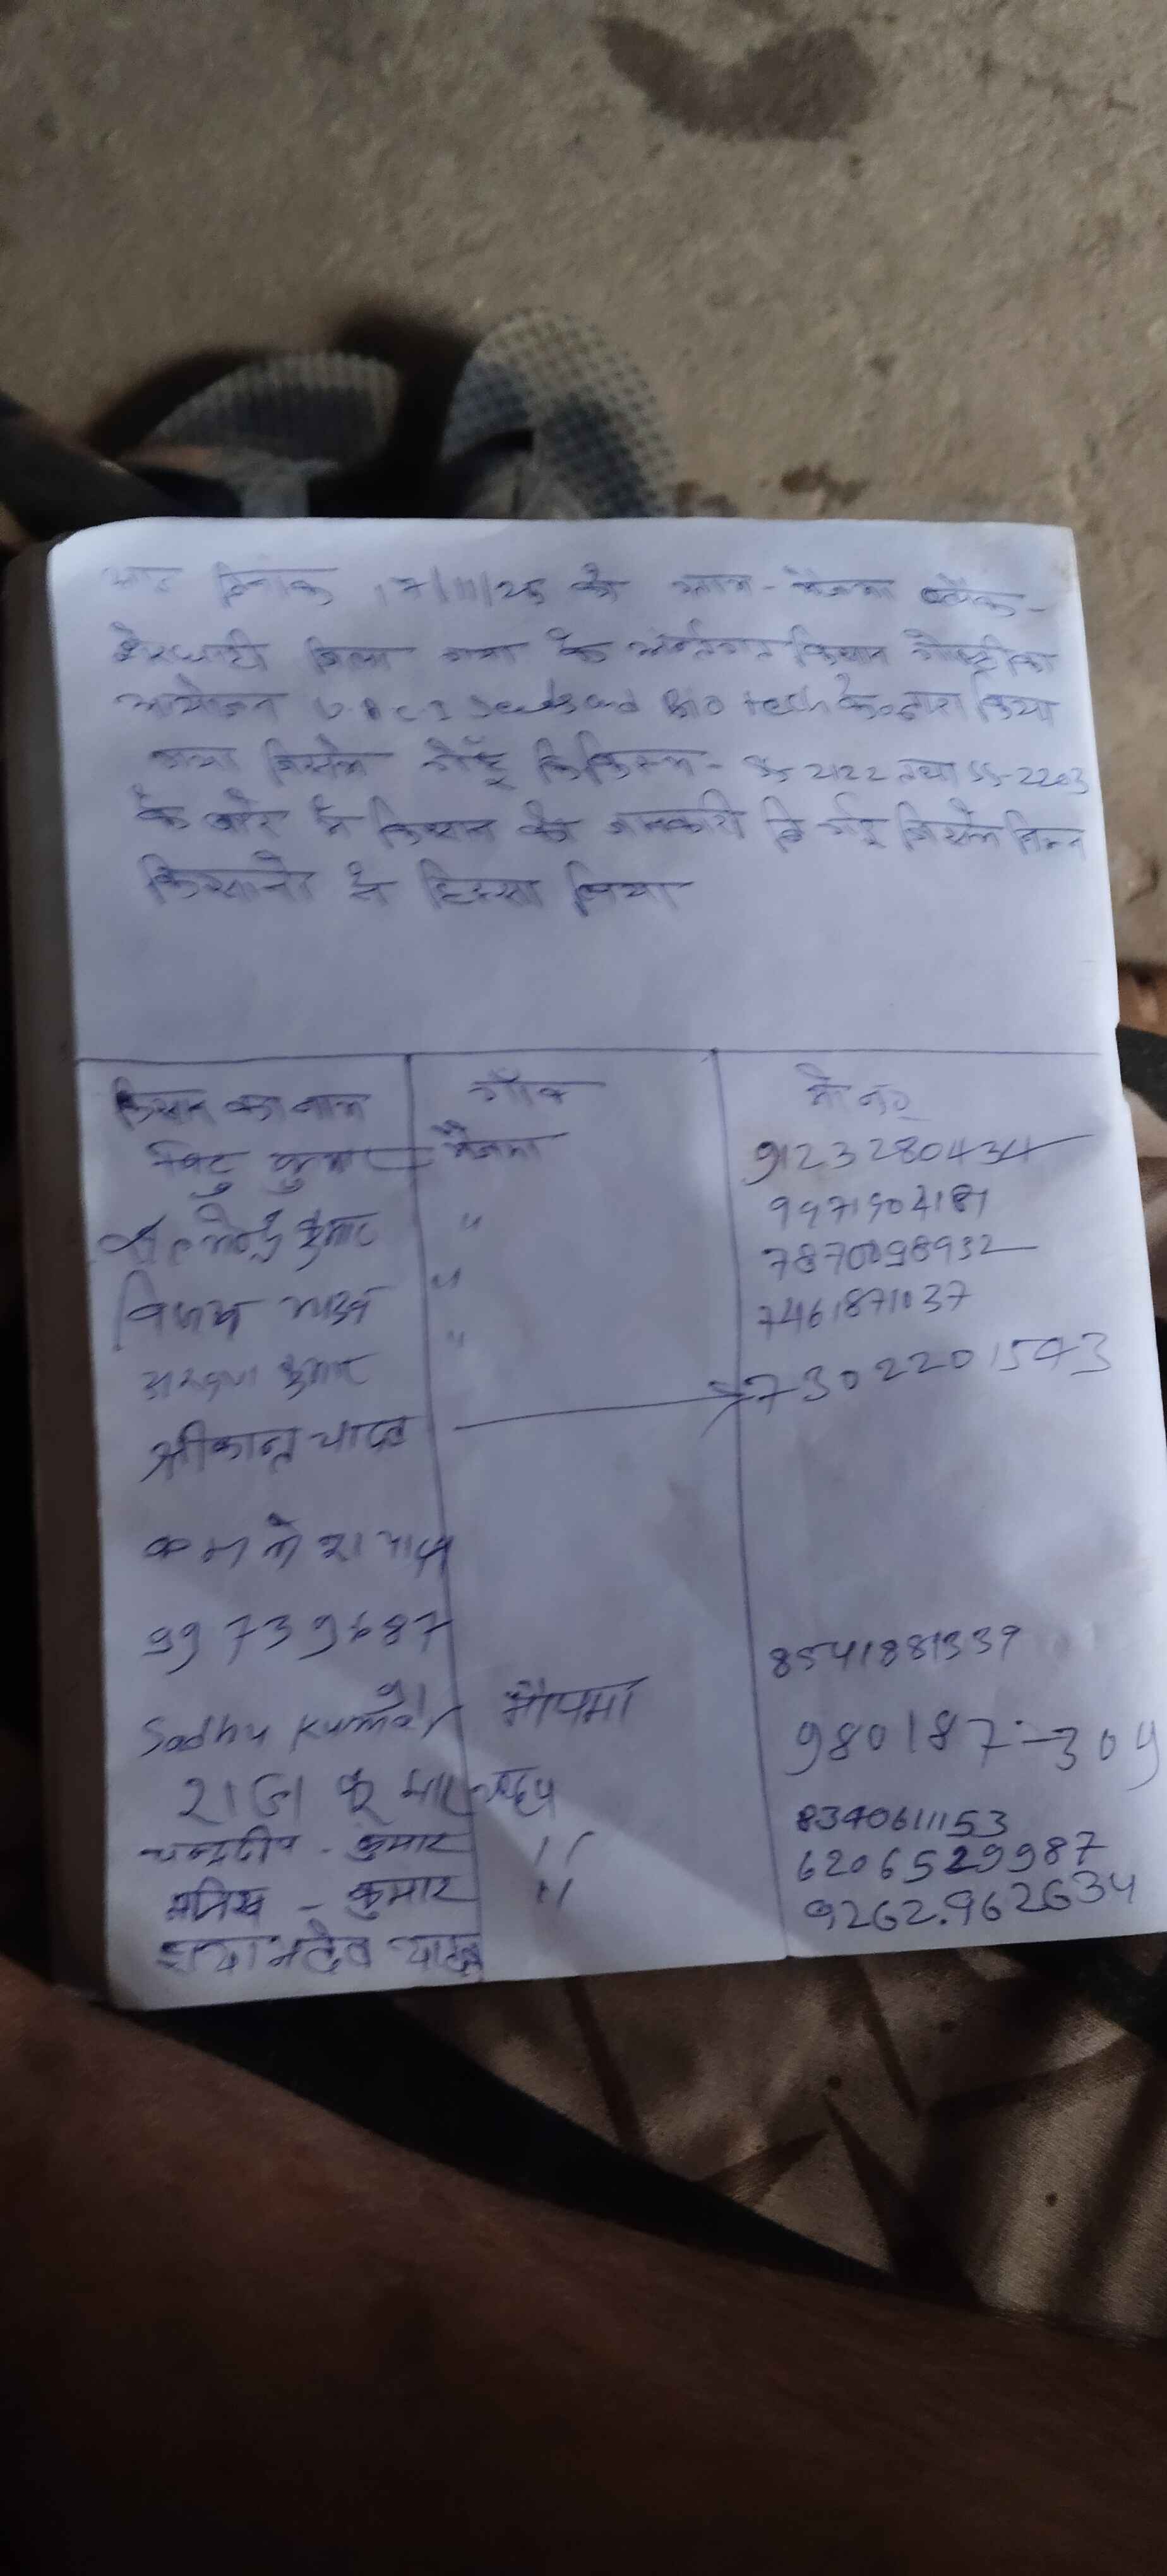 दिनांक 17/11/25 को ग्राम - मैजमा ब्लॉक -
जिला गया के अंर्तगत किसान गोष्ट्री का
आयोजन Seeds and Bio tech के द्वारा किया
गया जिसमे गेहूँ कि किस्म - SS-2122 तथा SS-2203
के बारे मे किसान को जानकारी दि गई जिसमे निम्न
किसानो ने हिस्सा लिया
किसान का नाम गाँव मो नं०
कुमार मैजमा 9123280434
कुमार " 9971904181
विजय " 7870098932
कुमार " 7461871037
श्रीकान्त यादव 7302201543
कमलेश यादव
99739687
91
8541881339
Sadhu Kumar
राजा कुमार 980187-309
चन्द्रदीप - कुमार " 8340611153
मनिष - कुमार " 6206529987
श्यामदेव यादव 9262.962634